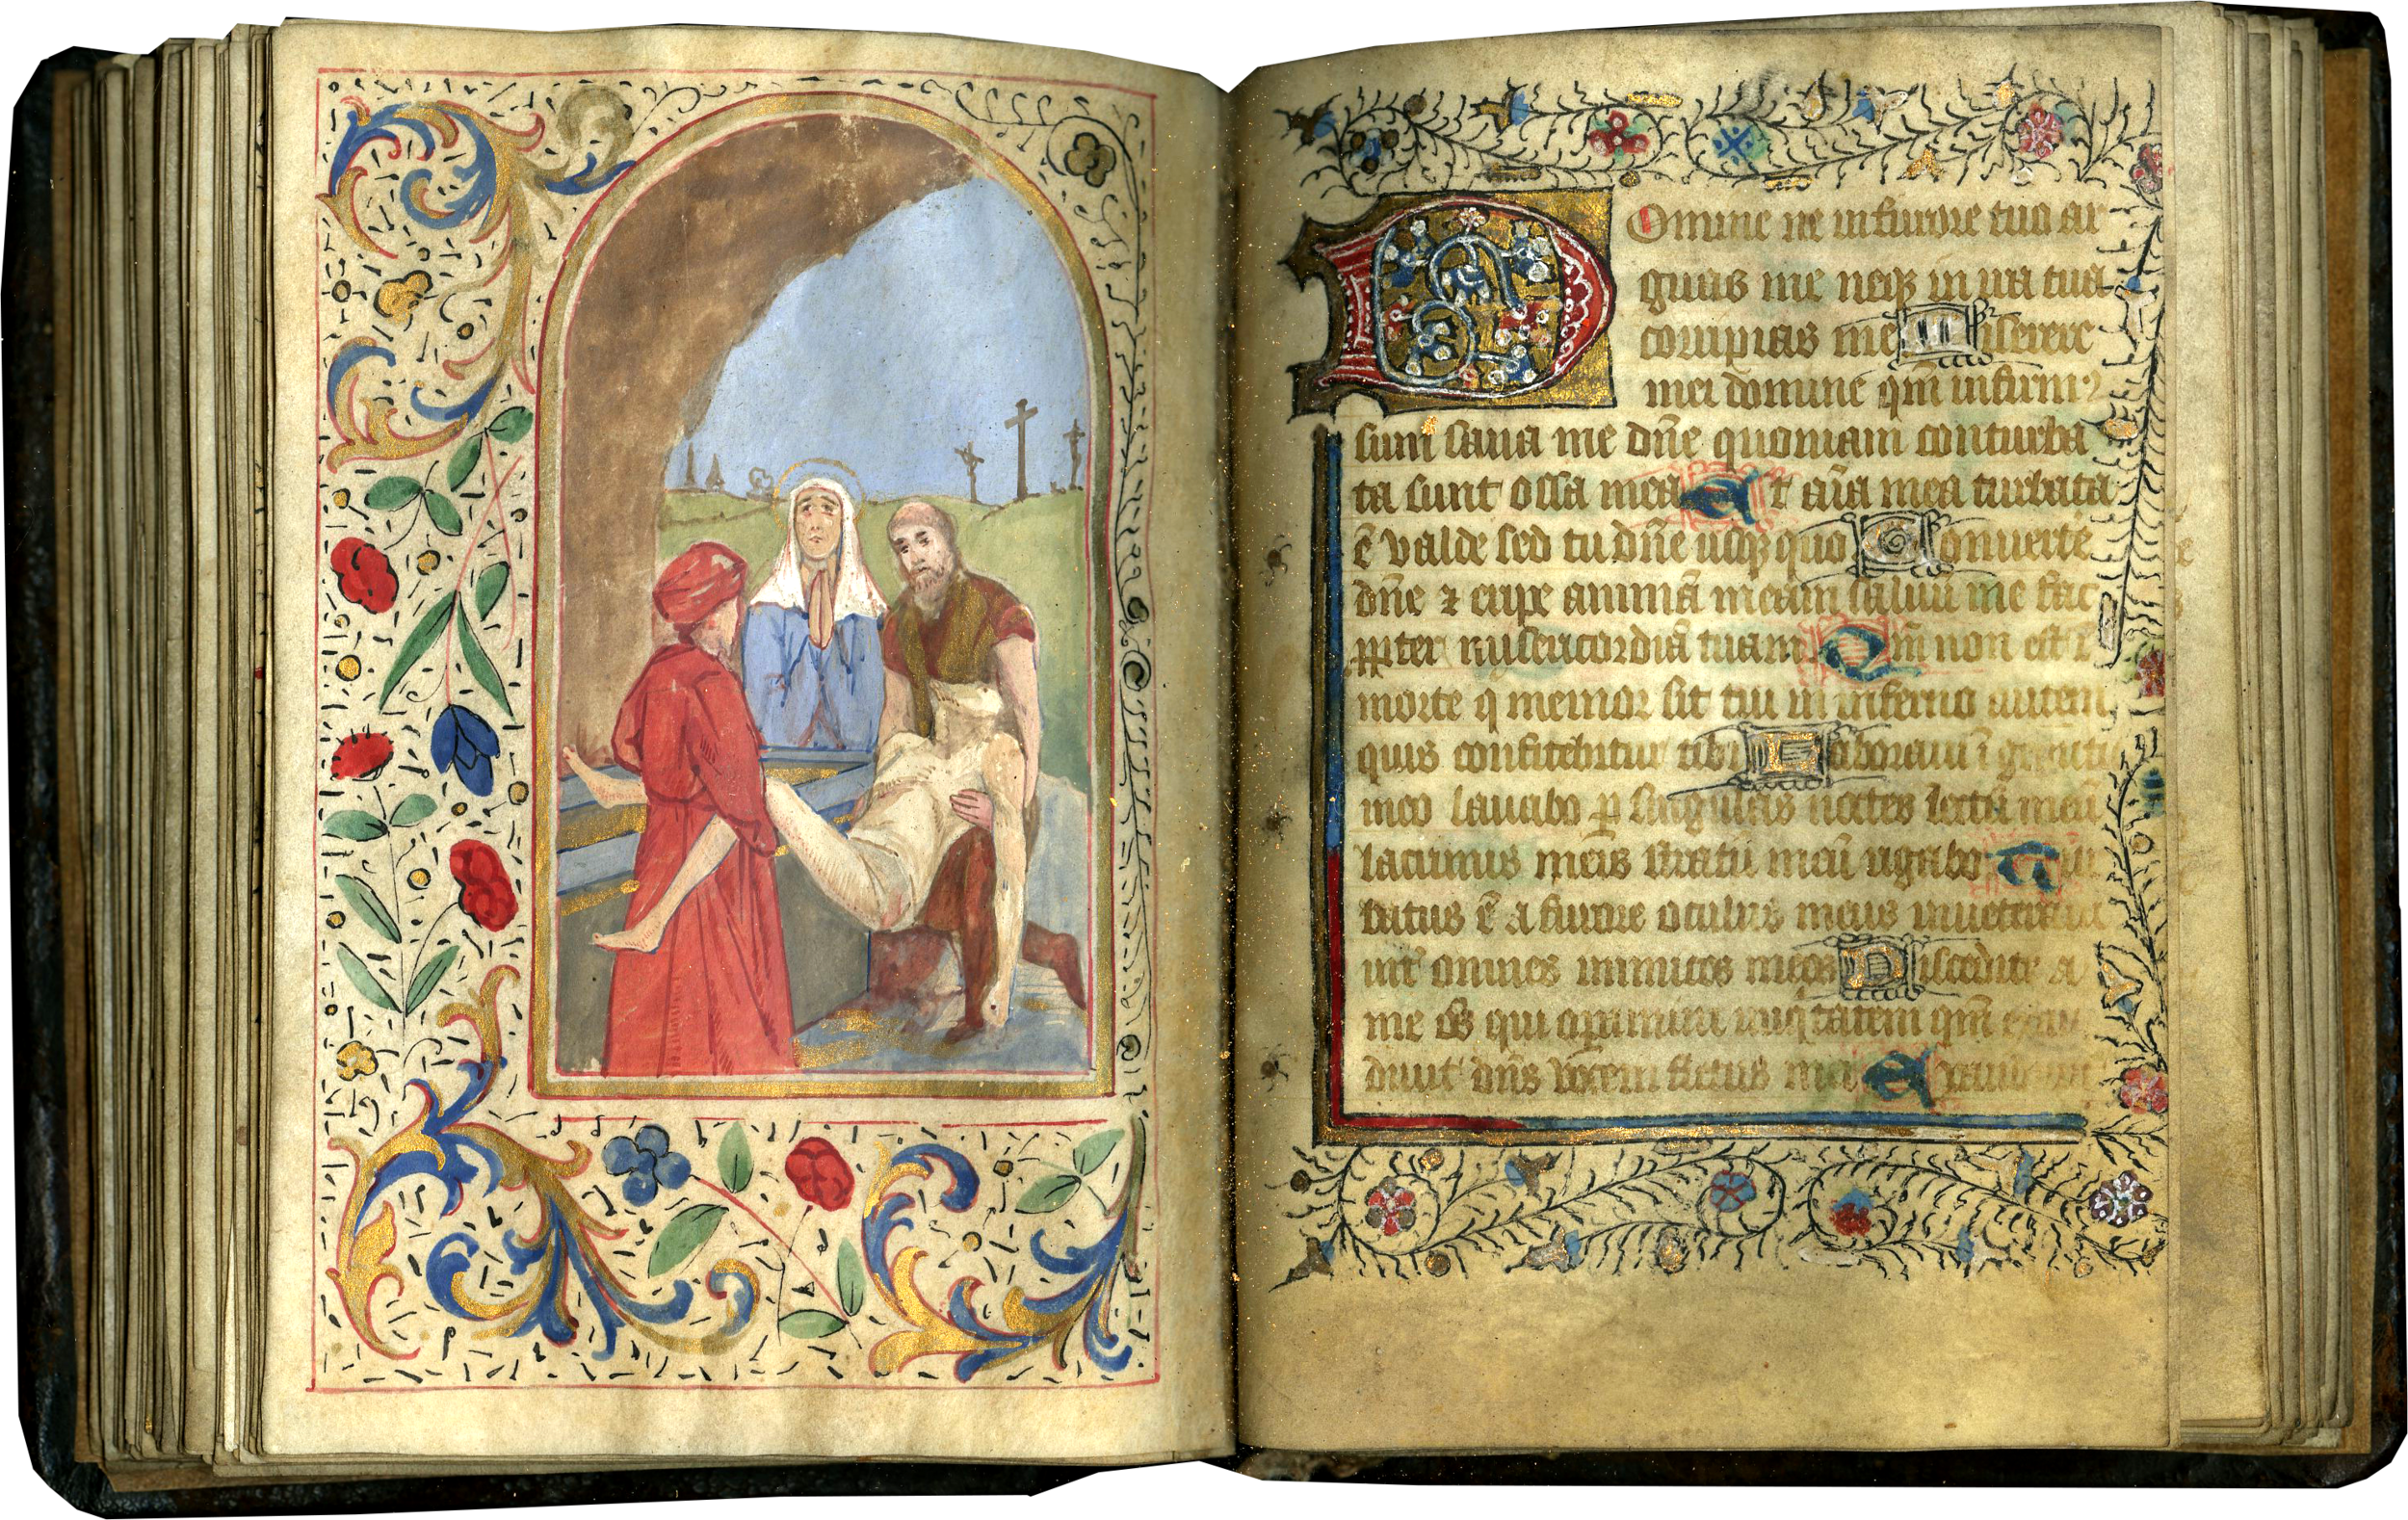 Domine ne in furore tuo ar
guas me neqꝫ in ira tua
corripias me Miserere
mei domine qm̄ infirmꝰ
sum sana me dn̄e quoniam conturba
ta sunt ossa mea Et aīa mea turbata
ē valde sed tu dn̄e usqꝫ quo Conuerte
dn̄e ⁊ eripe animā meam saluū me fac
ꝓpter misericordiā tuam Qm̄ non est ī
morte q memor sit tui in inferno autem
quis confitebitur tibi Laboraui ī gemitu
meo lauabo ꝑ singulas noctes lectū meū
lacrimis meis stratū meū rigabo Tur
batus ē a furore oculus meus inueteraui
int̄ omnes inimicos meos Discedite a
me oēs qui oꝑamini iniqͥtatem qm̄ exau
diuit dn̄s vocem fletus mei Exaudiuit